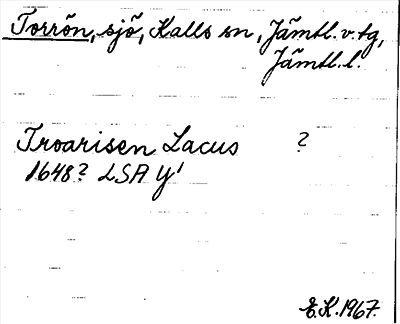 Torrön, sjö, Kalls sn, Jämtl. v. tg,
Jämtl. l.
Troarisen Lacus ?
1648? LSA Y1
E.K. 1967.